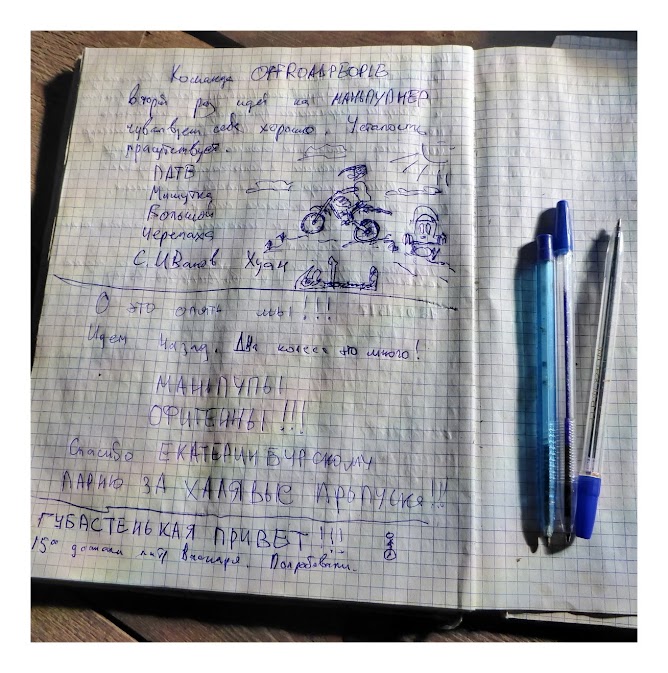 Команда OFFROADPEOPLE
второй раз идёт на МАНЬПУПНЕР
чувствует себя хорошо. Усталость
присутствует.
ПАТВ
Мишутка
Большой
Черепаха
С. Иванов Хуан
О это опять мы!!!
Идем назад. Два колеса это много!
МАНЬПУПЫ
ОФИГЕННЫ!!!
Спасибо ЕКАТЕРИНБУРСКОМУ
ПАРНЮ ЗА ХАЛЯВЫЕ ПРОПУСКА!!!
ГУБАСТЕНЬКАЯ ПРИВЕТ!!!
15⁰⁰